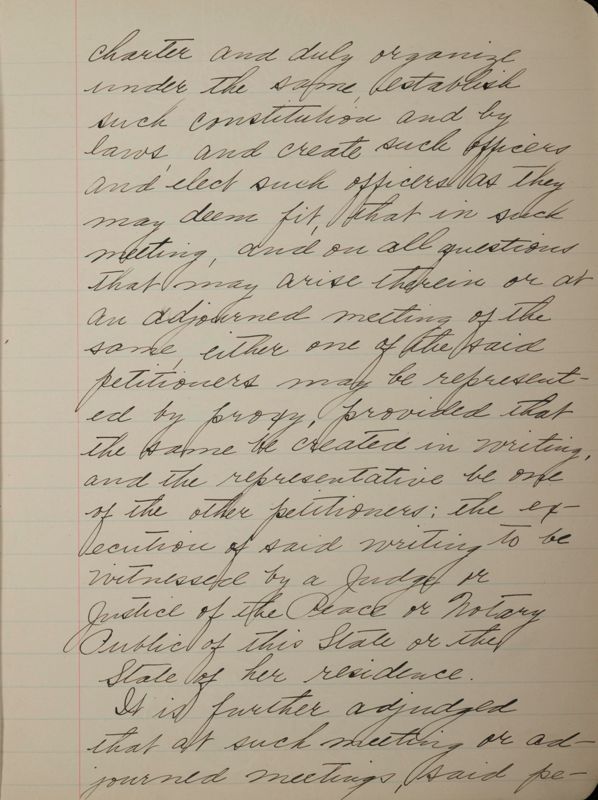 charter and duly organize
under the same, establish
such constitution and by
laws, and create such officers
and elect such officers as they
may deem fit, that in such
meeting, and on all questions
that may arise therein or at
an adjourned meeting of the
same, either one of the said
petitioners may be represent-
ed by proxy, provided that
the same be created in writing,
and the representative be one
of the other petitioners; the ex-
ecution of said writing to be
witnessed by a Judge or
Justice of the Peace or Notary
Public of this State or the
State of her residence.
It is further adjudged
that at such meeting or ad-
journed meetings, said pe-